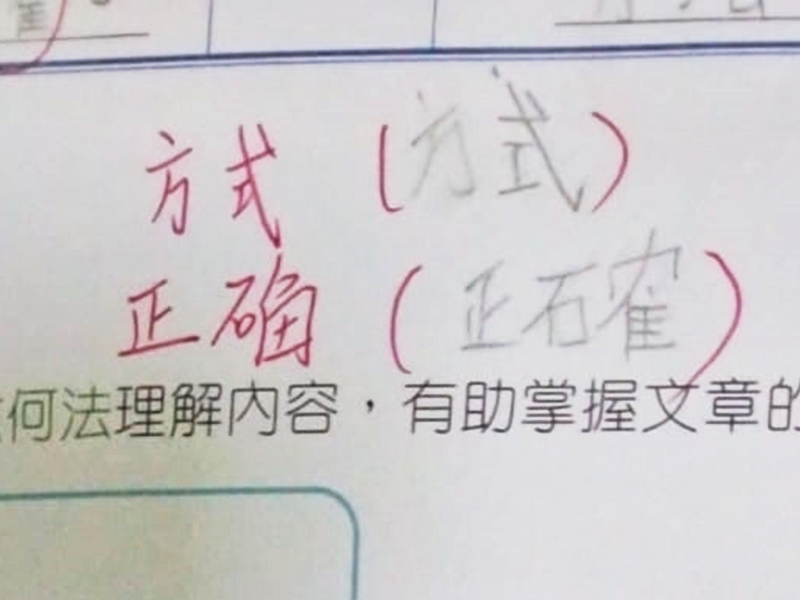 方式 (方式)
正确 (正確)
何法理解內容，有助掌握文章的